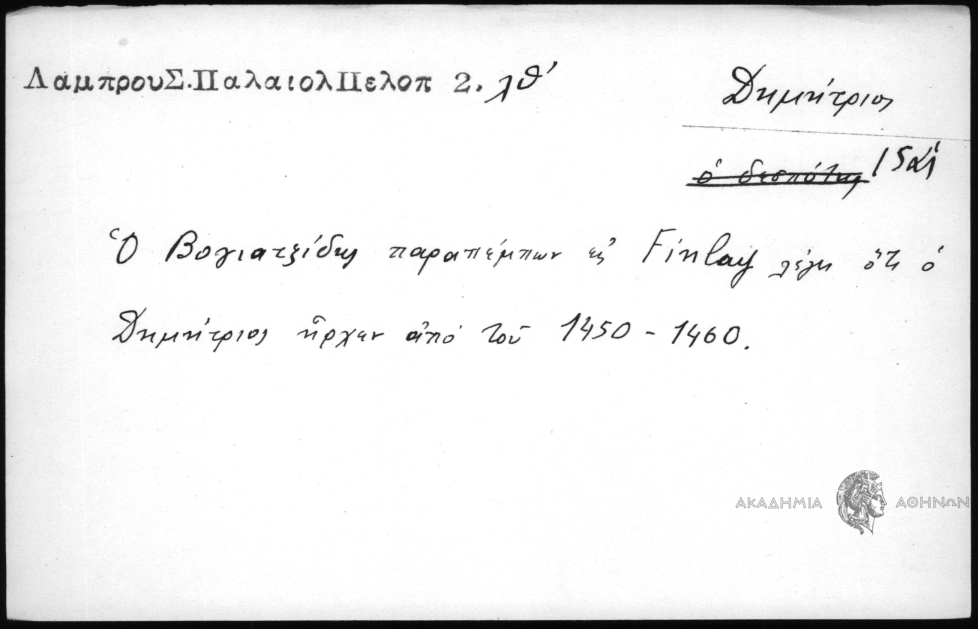 ΛαμπρουΣ.ΠαλαιολΠελοπ 2. λθ'
Δημήτριος
ὁ δεσπότης
Ὁ Βογιατζίδης παραπέμπων εἰς Finlay λέγει ὅτι ὁ
Δημήτριος ἦρχεν ἀπό τοῦ 1450 - 1460.
ΑΚΑΔΗΜΙΑ ΑΘΗΝΩΝ